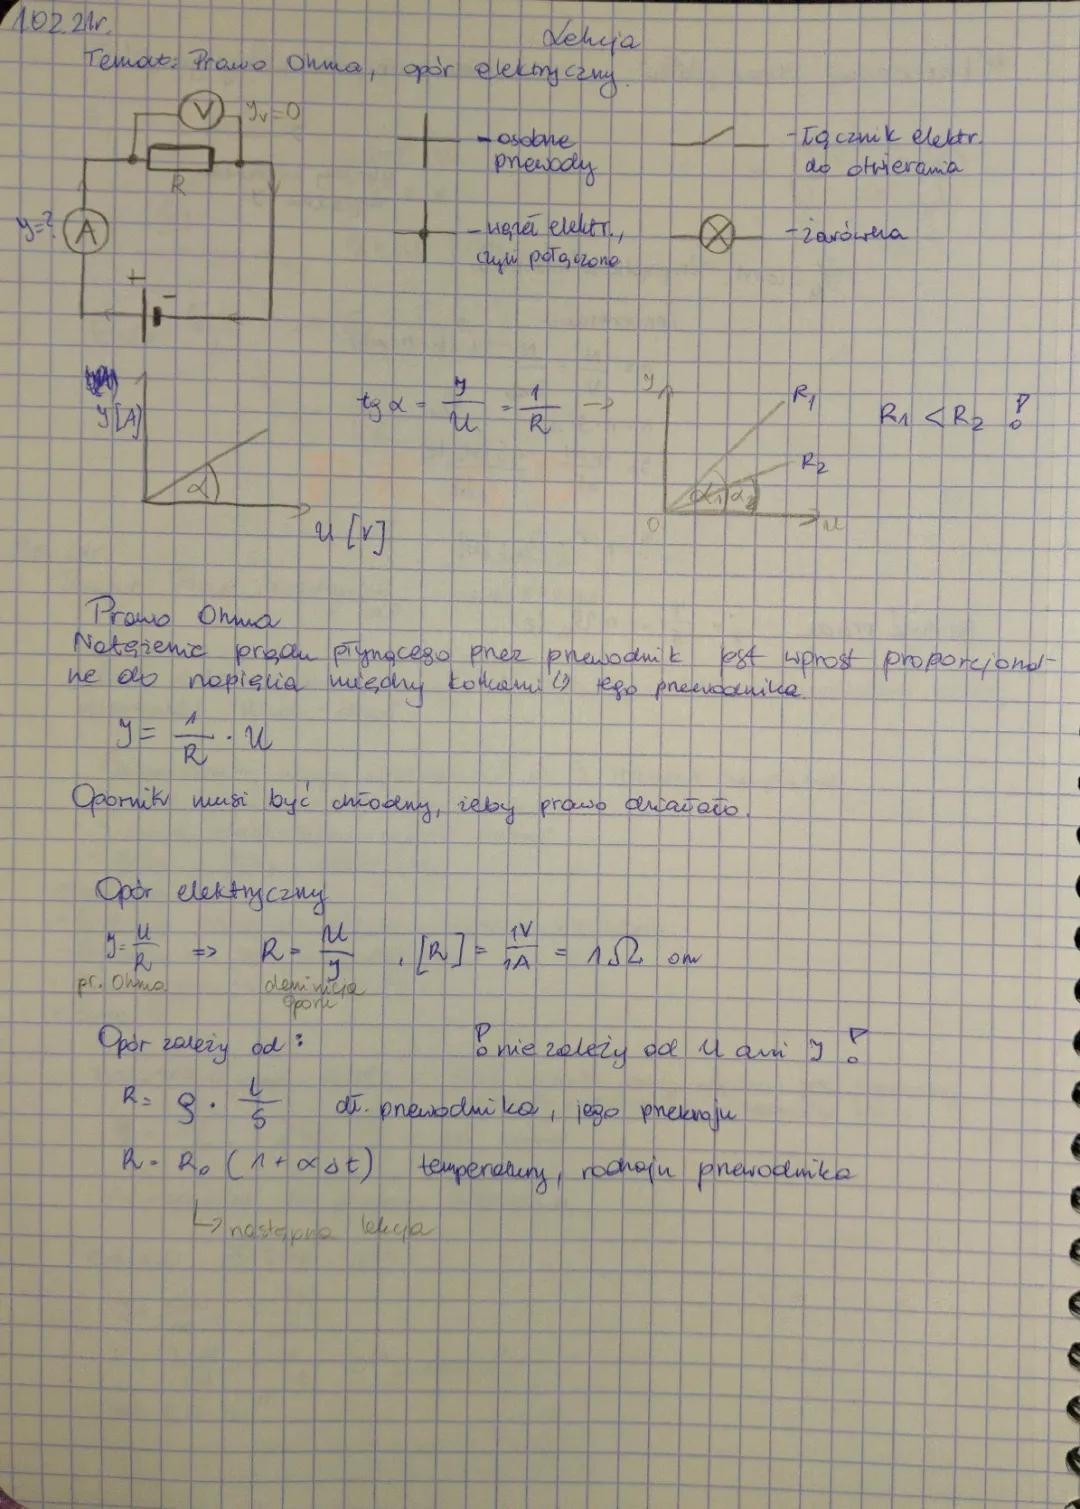 1.02.21r.
Lekcja
Temat: Prawo Ohma, opór elektryczny.
V
Iv=0
R
I=?
A
+
-
- osobne
przewody
- węzeł elektr.,
czyli połączone
- Łącznik elektr.
do otwierania
- żarówka
I [A]
α
U [V]
tg α = I/U = 1/R →
I
R1
R2
α1
α2
0
U
R1 < R2 !
Prawo Ohma
Natężenie prądu płynącego przez przewodnik jest wprost proporcjonal-
ne do napięcia między końcami (!) tego przewodnika.
I = 1/R · U
Opornik musi być chłodny, żeby prawo działało.
Opór elektryczny
I = U/R => R = U/I , [R] = 1V/1A = 1Ω om
pr. Ohma
definicja
oporu
Opór zależy od: ! nie zależy od U ani I !
R = ρ · L/S dł. przewodnika, jego przekroju
R = R0 (1 + αΔt) temperatury, rodzaju przewodnika
↳ następna lekcja